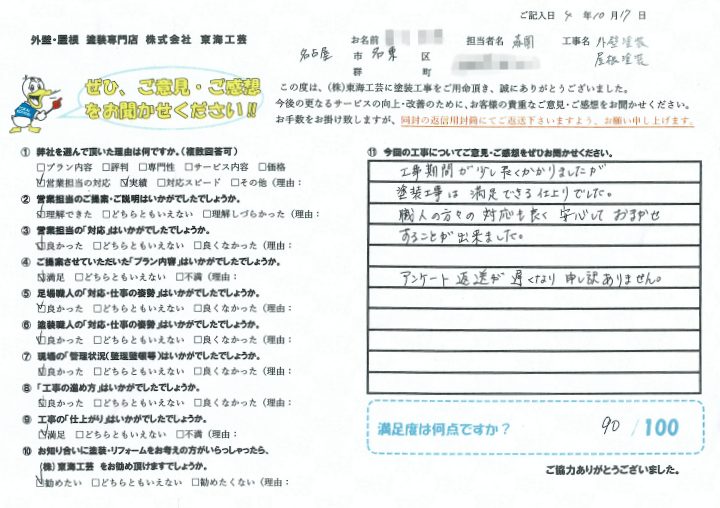 ご記入日 4 年 10 月 17 日
外壁・屋根 塗装専門店 株式会社 東海工芸
お名前 担当者名 工事名 外壁塗装
屋根塗装
名古屋 市 名東 区
群 町
ぜひ、ご意見・ご感想
をお聞かせください!!
この度は、(株)東海工芸に塗装工事をご用命頂き、誠にありがとうございました。
今後の更なるサービスの向上・改善のために、お客様の貴重なご意見・ご感想をお聞かせください。
お手数をお掛け致しますが、同封の返信用封筒にてご返送下さいますよう、お願い申し上げます。
① 弊社を選んで頂いた理由は何ですか。(複数回答可)
□プラン内容 □評判 □専門性 □サービス内容 □価格
☑営業担当の対応 ☑実績 □対応スピード □その他(理由:
② 営業担当のご提案・ご説明はいかがでしたでしょうか。
☑理解できた □どちらともいえない □理解しづらかった(理由:
③ 営業担当の「対応」はいかがでしたでしょうか。
☑良かった □どちらともいえない □良くなかった(理由:
④ ご提案させていただいた「プラン内容」はいかがでしたでしょうか。
☑満足 □どちらともいえない □不満(理由:
⑤ 足場職人の「対応・仕事の姿勢」はいかがでしたでしょうか。
☑良かった □どちらともいえない □良くなかった(理由:
⑥ 塗装職人の「対応・仕事の姿勢」はいかがでしたでしょうか。
☑良かった □どちらともいえない □良くなかった(理由:
⑦ 現場の「管理状況(整理整頓等)はいかがでしたでしょうか。
☑良かった □どちらともいえない □良くなかった(理由:
⑧ 「工事の進め方」はいかがでしたでしょうか。
☑良かった □どちらともいえない □良くなかった(理由:
⑨ 工事の「仕上がり」はいかがでしたでしょうか。
☑満足 □どちらともいえない □不満(理由:
⑩ お知り合いに塗装・リフォームをお考えの方がいらっしゃったら、
(株)東海工芸 をお勧め頂けますでしょうか。
☑勧めたい □どちらともいえない □勧めたくない(理由:
⑪ 今回の工事についてご意見・ご感想をぜひお聞かせください。
工事期間が少し長くかかりましたが
塗装工事は満足できる仕上りでした。
職人の方々の対応も良く安心しておまかせ
することが出来ました。
アンケート返送が遅くなり申し訳ありません。
満足度は何点ですか? 90 / 100
ご協力ありがとうございました。